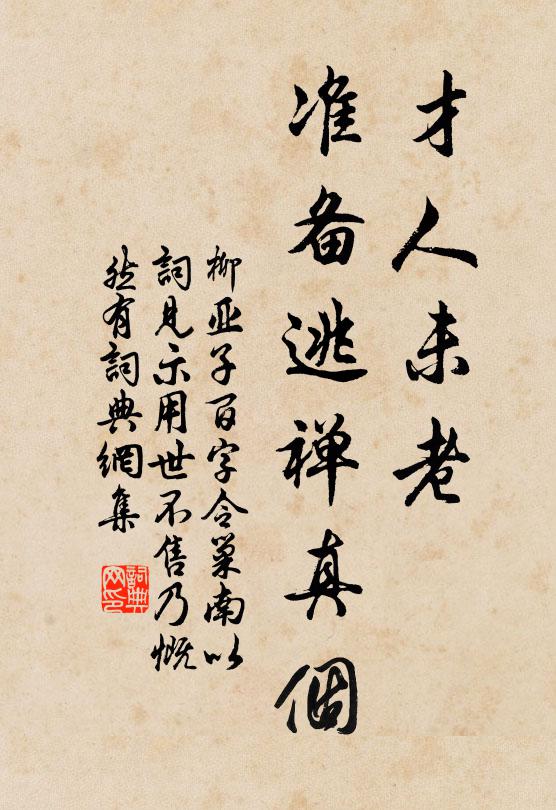 才人未老
准备逃禅真個
柳亚子百字令巢南以
詞见示用世不售乃慨
然有詞典網集
詞典
网印